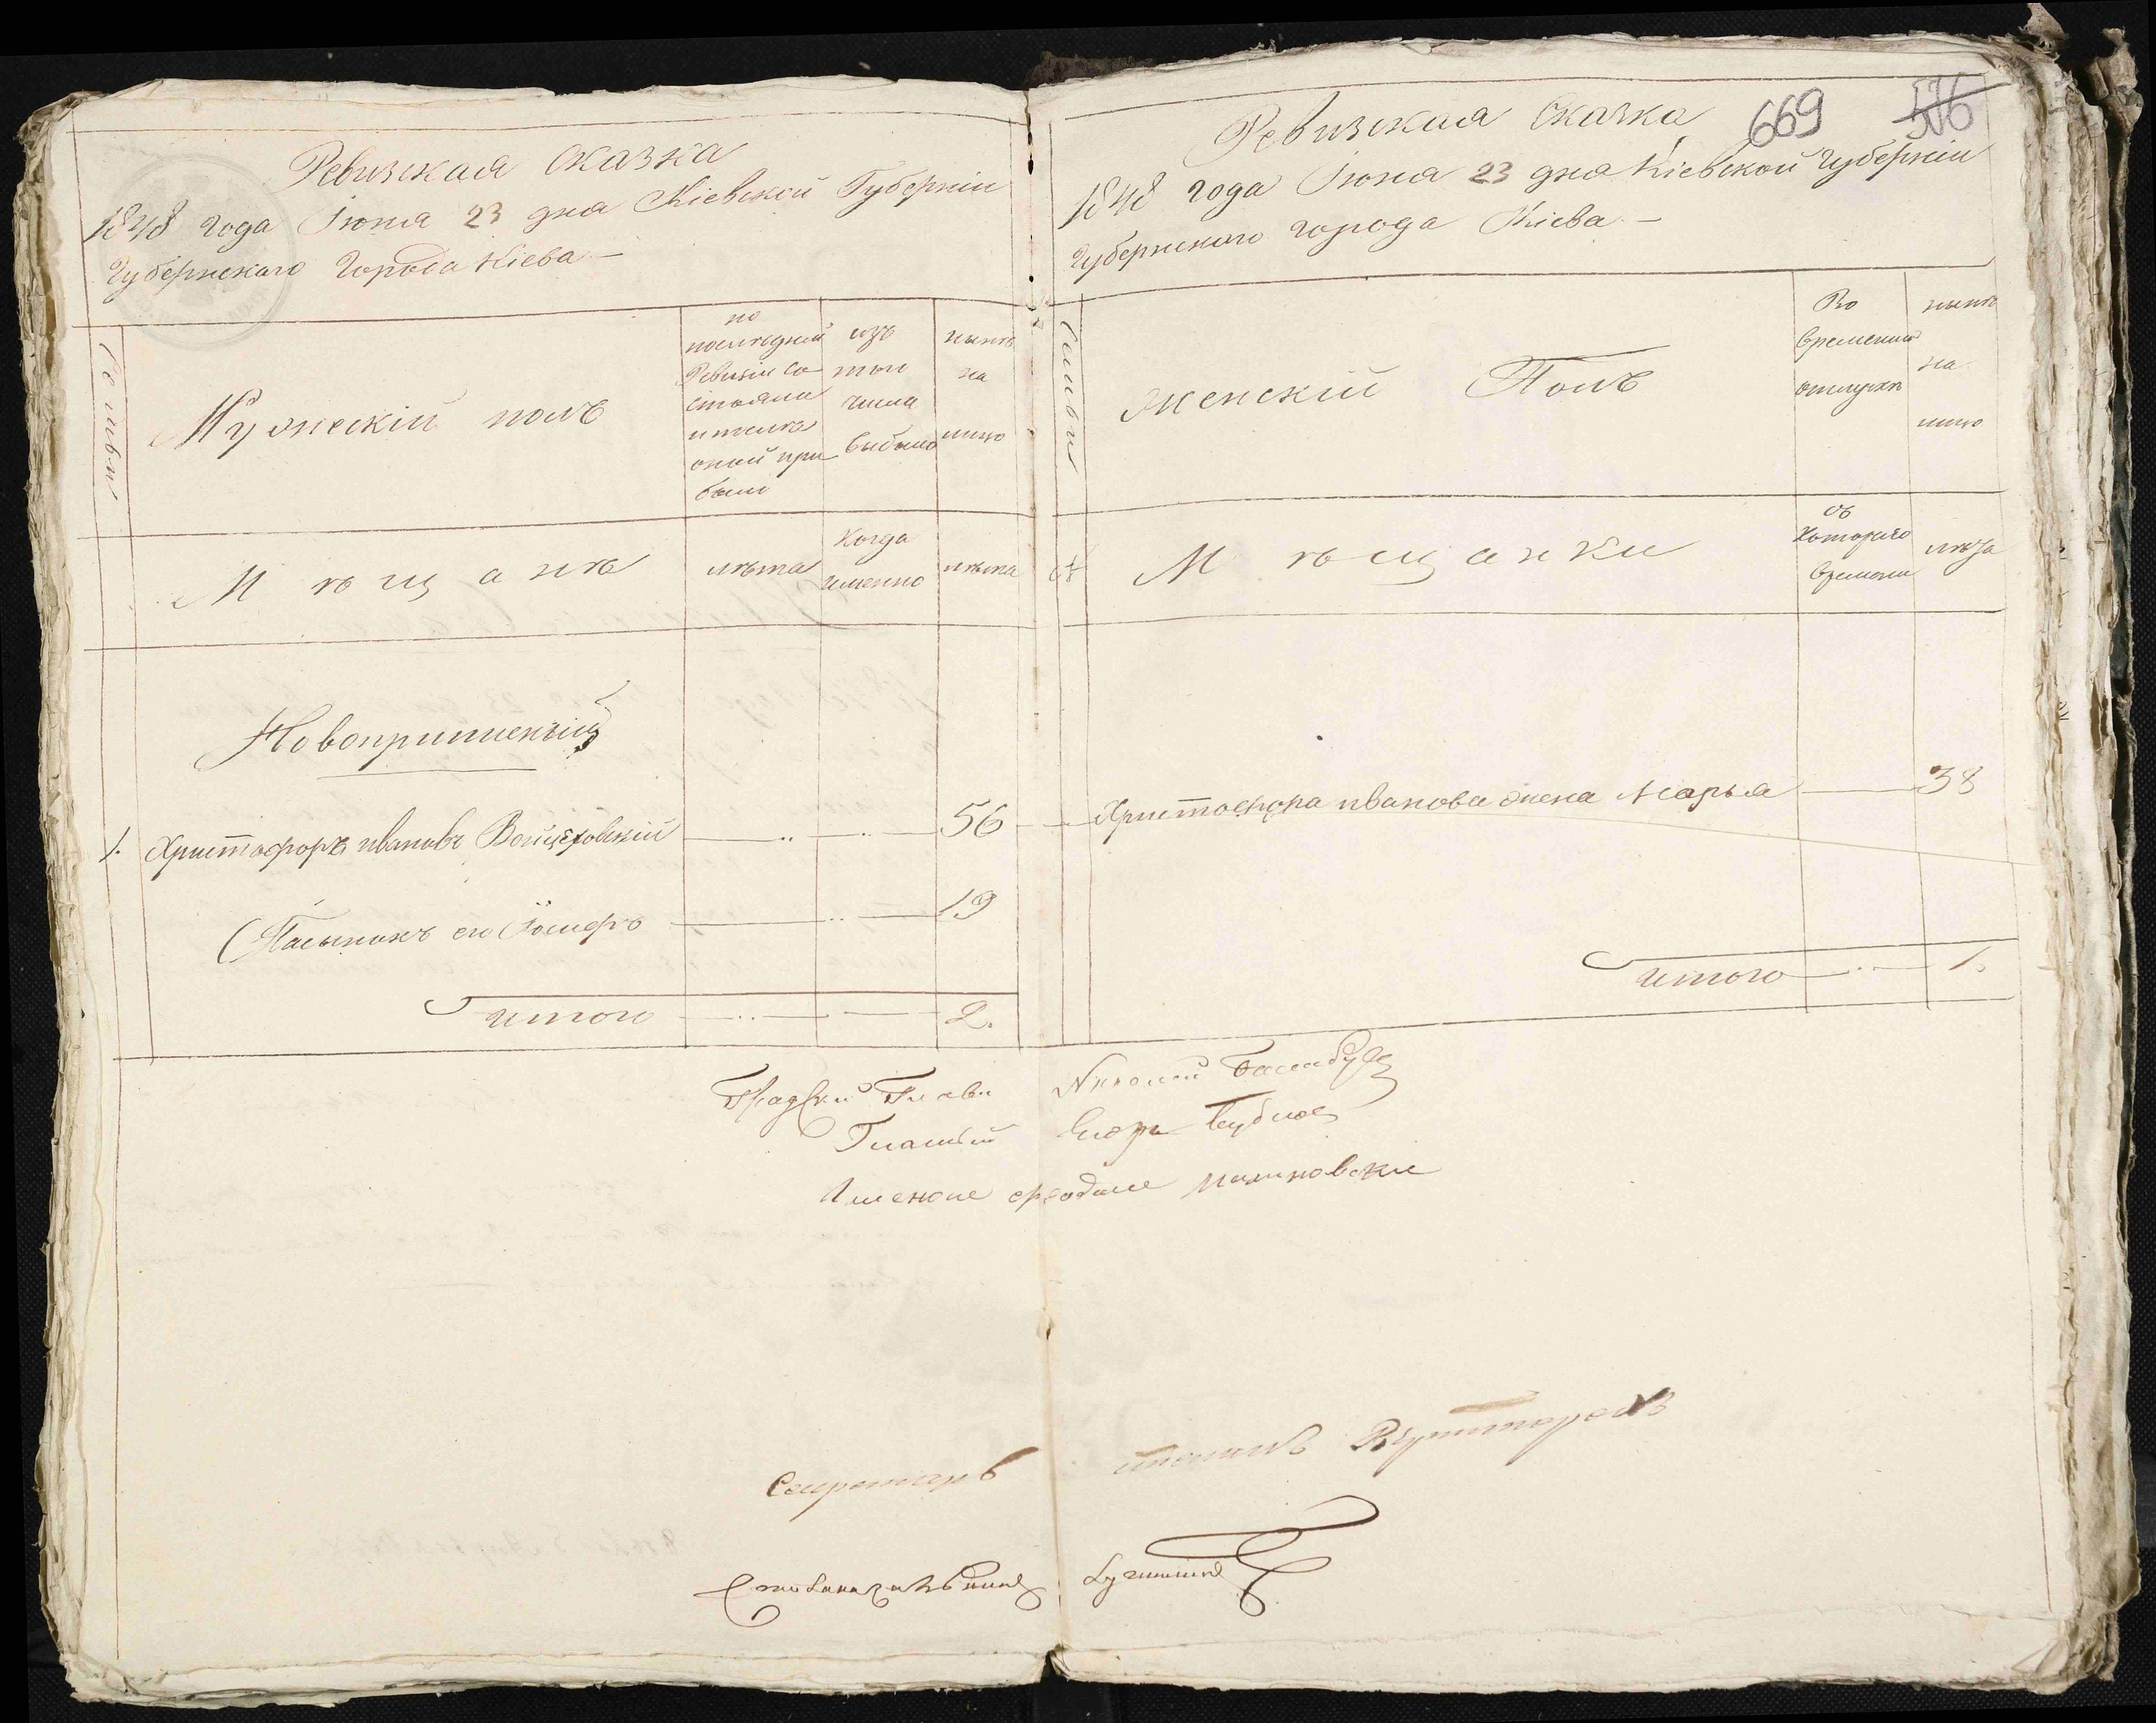 Ревизская Сказка
1848 года Іюня 23 дня Кіевской Губерніи
Губернскаго Города Кіева —
Семьи
Мужескій полъ
по
последней
Ревизіи со
стояло
и после
оной при
было
изъ
того
числа
выбыло
ныне
на
лицо
Мѣщане
лѣта
Когда
именно
лѣта
Новопришленый
1. Христофоръ Ивановъ Войцеховскій 56
Пасынокъ его Іосифъ 19
Итого 2.
669 576
Ревизская Сказка
1848 года Іюня 23 дня Кіевской Губерніи
Губернскаго города Кіева —
Семьи
Женскій Полъ
Во
временной
отлучкѣ
нынѣ
на
лицо
Мѣщанки
съ
Котораго
времени
лѣта
Христофора Иванова жена Марья 38
Итого 1.
Градский Глава Николай
Гласный Егоръ Бубнов
Секретарь